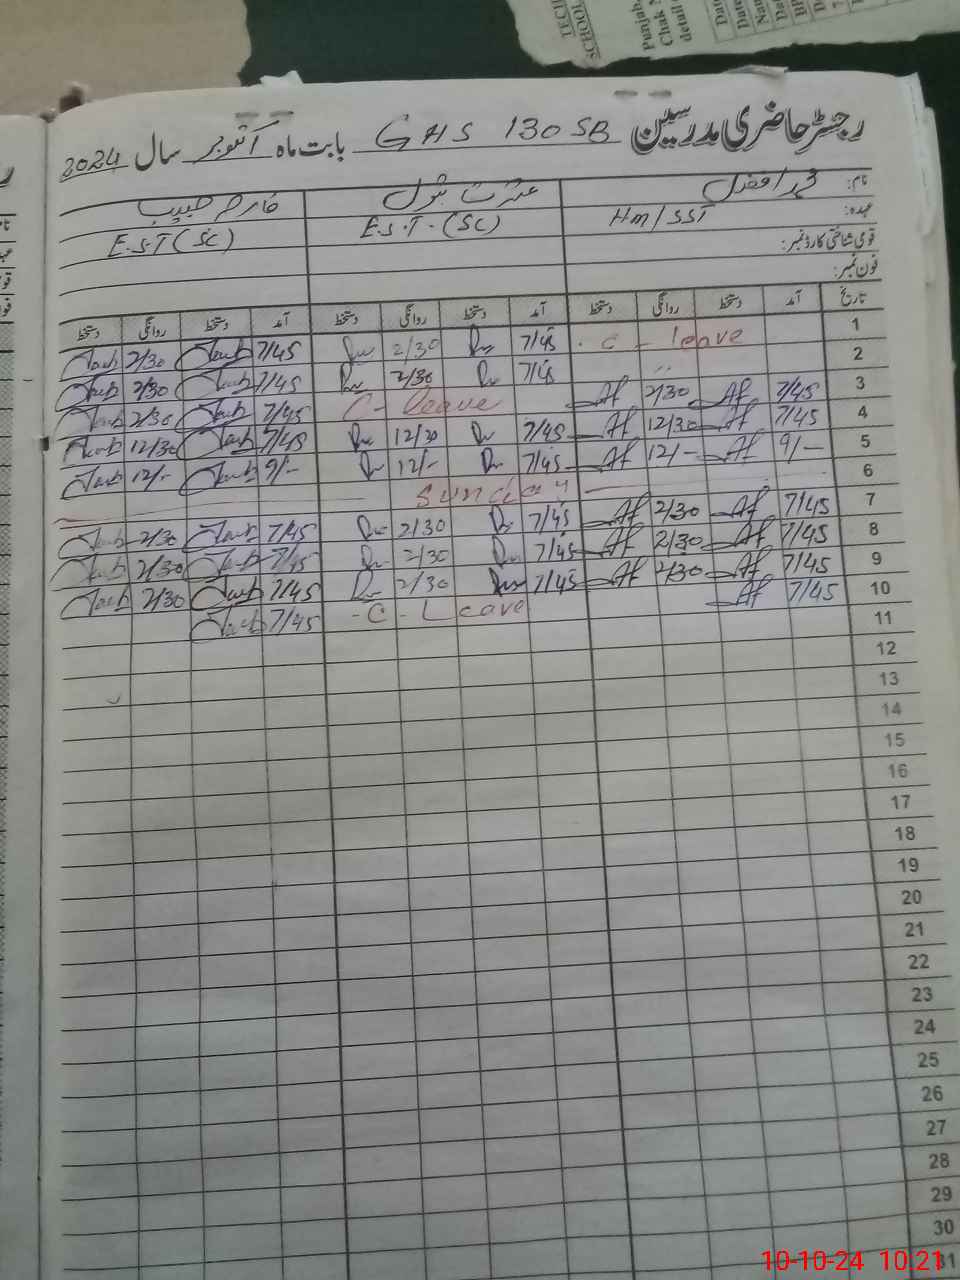 TECH
SCHOOL
Punjab
Chak
detail
رجسٹر حاضری مدرسین GHS 130 SB بابت ماہ اکتوبر سال 2024
نام: محمد افضل عشرت بتول فارحہ حبیب
عہدہ: HM/SST E.S.T.(SC) E.S.T(SC)
قومی شناختی کارڈ نمبر:
فون نمبر:
تاریخ آمد دستخط روانگی دستخط آمد دستخط روانگی دستخط آمد دستخط روانگی دستخط
1 C - leave 7/45 2/30 7/45 2/30
2 " 7/45 2/30 7/45 2/30
3 7/45 Af 2/30 Af C - leave 7/45 2/30
4 7/45 Af 12/30 Af 7/45 12/30 7/45 12/30
5 9/- Af 12/- Af 7/45 12/- 9/- 12/-
6 Sunday
7 7/45 Af 2/30 Af 7/45 2/30 7/45 2/30
8 7/45 Af 2/30 Af 7/45 2/30 7/45 2/30
9 7/45 Af 2/30 Af 7/45 2/30 7/45 2/30
10 7/45 Af - C - Leave 7/45
11
12
13
14
15
16
17
18
19
20
21
22
23
24
25
26
27
28
29
30
31
10-10-24 10:21